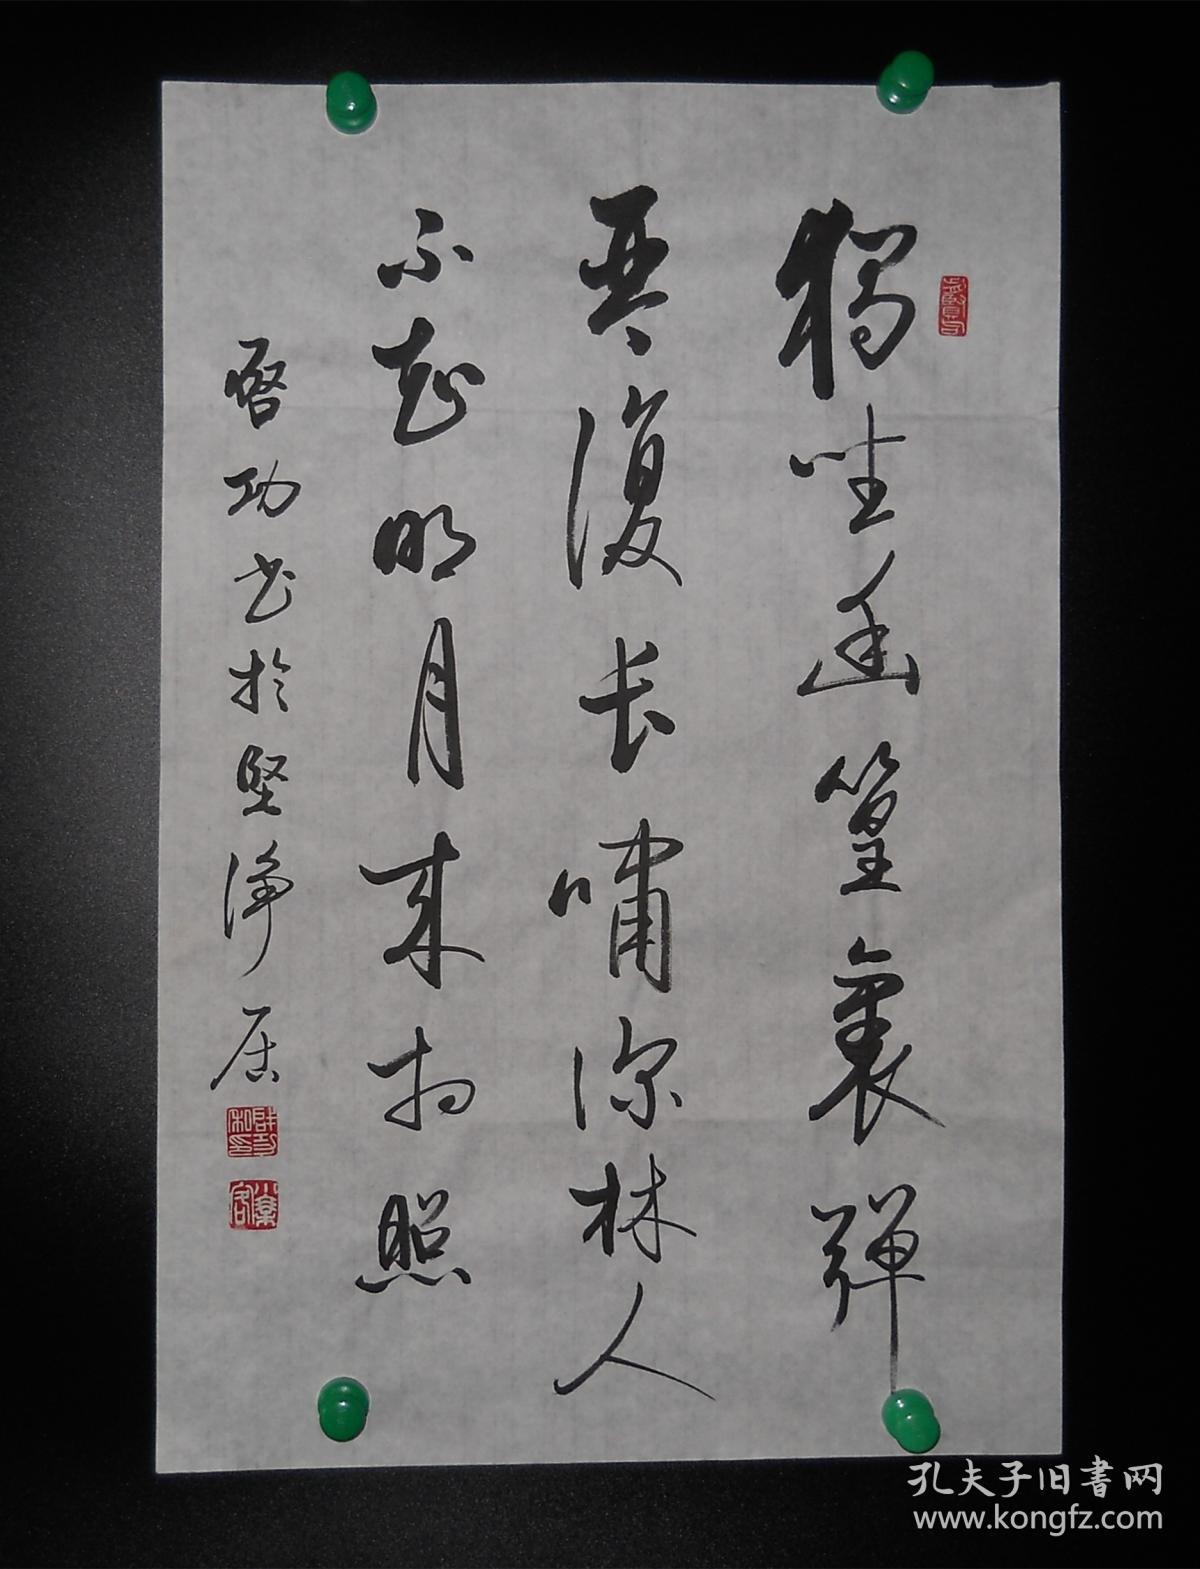 獨坐幽篁裏彈
琴復長嘯深林人
不知明月来相照
啓功书於堅淨居
孔夫子旧書网
www.kongfz.com